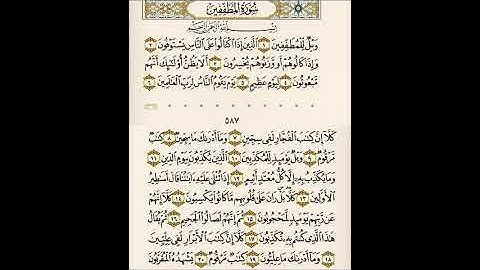 سُورَةُ المُطَفِّفِينَ
بِسْمِ اللَّهِ الرَّحْمَٰنِ الرَّحِيمِ
وَيْلٌ لِّلْمُطَفِّفِينَ ١ الَّذِينَ إِذَا اكْتَالُوا عَلَى النَّاسِ يَسْتَوْفُونَ ٢
وَإِذَا كَالُوهُمْ أَو وَّزَنُوهُمْ يُخْسِرُونَ ٣ أَلَا يَظُنُّ أُولَٰئِكَ أَنَّهُم
مَّبْعُوثُونَ ٤ لِيَوْمٍ عَظِيمٍ ٥ يَوْمَ يَقُومُ النَّاسُ لِرَبِّ الْعَالَمِينَ ٦
٥٨٧
كَلَّا إِنَّ كِتَابَ الْفُجَّارِ لَفِي سِجِّينٍ ٧ وَمَا أَدْرَاكَ مَا سِجِّينٌ ٨ كِتَابٌ
مَّرْقُومٌ ٩ وَيْلٌ يَوْمَئِذٍ لِّلْمُكَذِّبِينَ ١٠ الَّذِينَ يُكَذِّبُونَ بِيَوْمِ الدِّينِ ١١
وَمَا يُكَذِّبُ بِهِ إِلَّا كُلُّ مُعْتَدٍ أَثِيمٍ ١٢ إِذَا تُتْلَىٰ عَلَيْهِ آيَاتُنَا قَالَ أَسَاطِيرُ
الْأَوَّلِينَ ١٣ كَلَّا بَلْ رَانَ عَلَىٰ قُلُوبِهِم مَّا كَانُوا يَكْسِبُونَ ١٤ كَلَّا إِنَّهُمْ
عَن رَّبِّهِمْ يَوْمَئِذٍ لَّمَحْجُوبُونَ ١٥ ثُمَّ إِنَّهُمْ لَصَالُوا الْجَحِيمِ ١٦ ثُمَّ يُقَالُ
هَٰذَا الَّذِي كُنتُم بِهِ تُكَذِّبُونَ ١٧ كَلَّا إِنَّ كِتَابَ الْأَبْرَارِ لَفِي عِلِّيِّينَ
١٨ وَمَا أَدْرَاكَ مَا عِلِّيُّونَ ١٩ كِتَابٌ مَّرْقُومٌ ٢٠ يَشْهَدُهُ الْمُقَرَّبُونَ